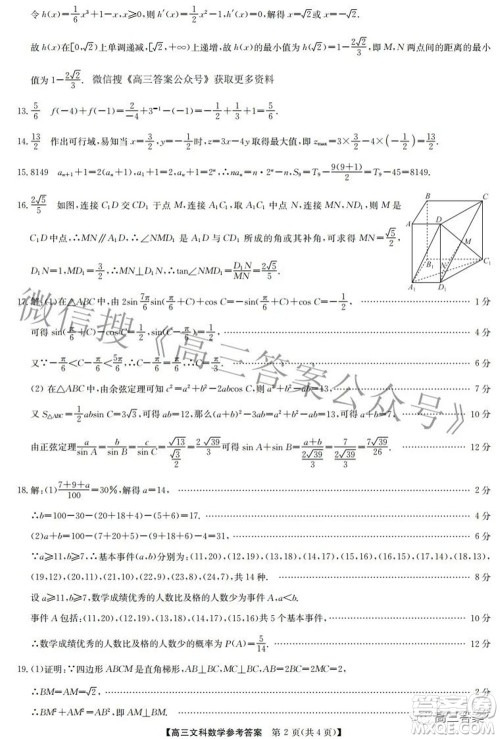 令 h(x)=1/6x³+1-x, x≥0, 则 h'(x)=1/2x²-1, h'(x)=0, 解得 x=√2 或 x=-√2.
故 h(x) 在 [0,√2) 上单调递减, [√2,+∞) 上递增, 故 h(x) 的最小值为 h(√2)=1-2√2/3, 即 M,N 两点间的距离的最小
值为 1-2√2/3. 微信搜《高三答案公众号》获取更多资料
13. 5/6 f(-4)+f(-1)=2/(-4)+3⁻¹-(-1)=-1/2+1/3+1=5/6.
14. 13/2 作出可行域, 易知当 x=3/2, y=-1/2 时, z=3x-4y 取得最大值, 即 zmax=3×3/2-4×(-1/2)=13/2.
15. 8149 aₙ₊₁+1=2(aₙ+1), a₁+1=2, aₙ+1=2ⁿ, ∴naₙ=n·2ⁿ-n, S₉=T₉-9(9+1)/2=T₉-45=8149.
16. 2√5/5 如图, 连接 C₁D 交 CD₁ 于点 M, 连接 A₁C₁, 取 A₁C₁ 的中点 N, 连接 MN, ND₁, 则 M 是
C₁D 中点, ∴MN∥A₁D, ∴∠NMD₁ 与 A₁D 与 CD₁ 所成的角或其补角, 可求得 MN=√5/2,
D₁N=1, MD₁=3/2, ∴MN⊥D₁N, ∴tan∠NMD₁=D₁N/MN=2√5/5.
B C
A D
M
B₁ C₁
N
A₁ D₁
17. 解: (1) 在△ABC 中, 由 2sin 7π/6 sin(π/6+C)+cos C=-1/2, ⋯ 1 分
可得 sin(π/6+C)-cos C=1/2, ⋯ 4 分
又∵-π/6<C-π/6<5π/6, ∴C-π/6=π/6, C=π/3. ⋯ 6 分
(2) 在△ABC 中, 由余弦定理可知 c²=a²+b²-2abcos C, 则 a²+b²-ab=13, ⋯ 8 分
又 S△ABC=1/2absin C=3√3, 可得 ab=12, 那么 (a+b)²-3ab=13, 可得 a+b=7. ⋯ 10 分
由正弦定理 a/sin A=b/sin B=c/sin C=√13/(√3/2)=2√39/3, 可得 sin A+sin B=(a+b)/(2√39/3)=7/(2√39/3)=7√39/26. ⋯ 12 分
18. 解: (1) (7+9+a)/100=30%, 解得 a=14, ⋯ 2 分
∴b=100-30-(20+18+4)-(5+6)=17. ⋯ 4 分
(2) a+b=100-(7+20+5)-(9+18+6)-4=31. ⋯ 6 分
∵a≥11, b≥7, ∴基本事件 (a,b) 分别为: (11,20), (12,19), (13,18), (14,17), (15,16), (16,15), (17,14), (18,13),
(19,12), (20,11), (21,10), (22,9), (23,8), (24,7), 共 14 种. ⋯ 8 分
设 a≥11, b≥7, 数学成绩优秀的人数比及格的人数少为事件 A, a<b.
事件 A 包括: (11,20), (12,19), (13,18), (14,17), (15,16) 共 5 个基本事件. ⋯ 10 分
∴数学成绩优秀的人数比及格的人数少的概率为 P(A)=5/14. ⋯ 12 分
19. (1) 证明: ∵四边形 ABCM 是直角梯形, AB⊥BC, MC⊥BC, AB=2BC=2MC=2,
∴BM=AM=√2, ⋯ 2 分
∴BM²+AM²=AB², 即 AM⊥BM.
【高三文科数学参考答案 第 2 页(共 4 页)】
微信搜《高三答案公众号》